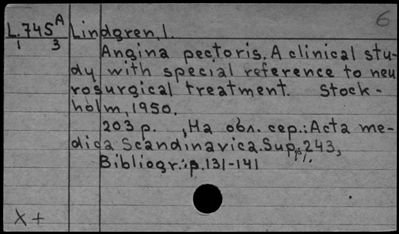 6
L.745 A Lindgren, I.
1 3
Angina pectoris. A clinical stu-
dy with special reference to neu
rosurgical treatment. Stock-
holm, 1950.
203 p. , На обл. сер.: Acta me-
dica Scandinavica. Sup., 243,
Bibliogr.: p. 131-141
X +